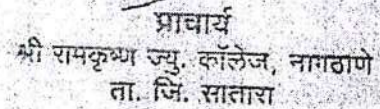 प्राचार्य
श्री रामकृष्ण ज्यु. कॉलेज, नागठाणे
ता. जि. सातारा